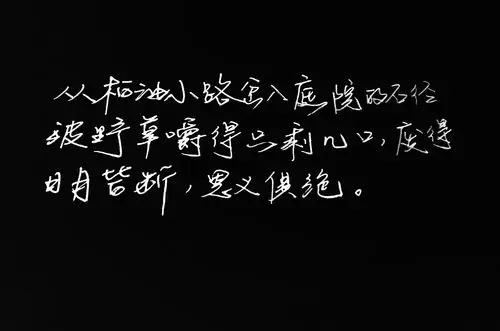 从柏油小路舀入庭院的石径
被野草嚼得只剩几口,废得
日月皆断,恩义俱绝。